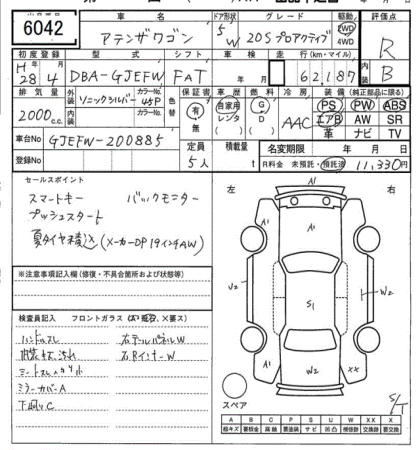 6042
車名 ドア形状 グレード 駆動 評価点
アテンザワゴン 5W 20S プロアクティブ 2WD 4WD R
初度登録 型式 シフト 車検 走行(km・マイル) 内装
H28年4月 DBA-GJEFW FAT 年 月 62187 B
排気量 外装 カラーNo. 色替 保証書 車歴 燃料 冷房 装備(純正部品に限る)
2000c.c. ソニックシルバー 45P 有 無 自家用 レンタ G D AAC PS PW ABS
内装 カラーNo. エアB AW SR
革 ナビ TV
車台No GJEFW-200885 定員 積載量 名変期限 年 月 日
登録No 5人 t R料金 未預託・預託済 11,330円
セールスポイント
スマートキー バックモニター
プッシュスタート
夏タイヤ積込 (メーカーOP 19インチAW)
※注意事項記入欄(修復・不具合箇所および状態等)
検査員記入 フロントガラス
ハンドルスレ 右テールパネルW
内装キズ、汚れ 右RインナーW
シートスレ
ミラーカバーA
下廻りC
左 右
A1
A1
A1
U2
S1
W2
W2
XX
スペア
S/T
A B C P S U W X XX
線キズ 要板金 腐蝕 要塗装 サビ 凹凸 補修跡 要交換 交換跡